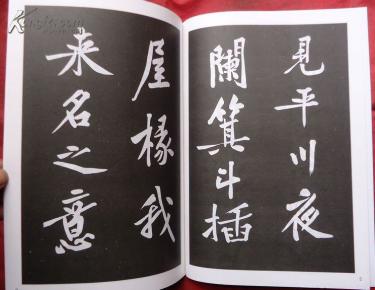 見平川夜
闌箕斗插
屋椽我
来名之意